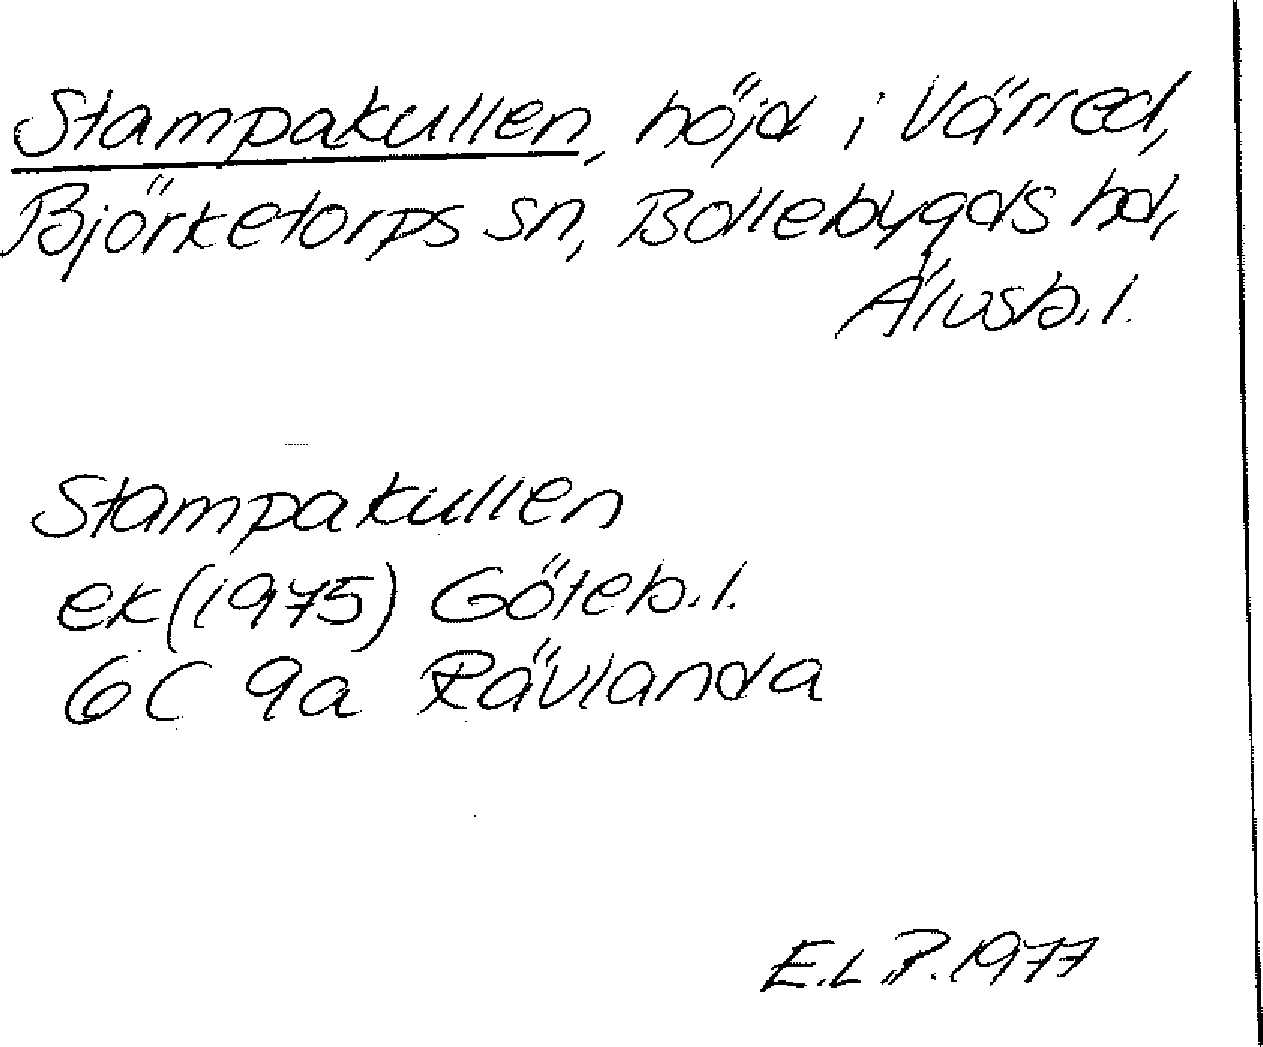 Stampakullen, höjd i Värred,
Björketorps sn, Bollebygds hd,
Älvsb.l.
Stampakullen
ek(1975) Göteb.l.
6C 9a Rävlanda
E.L.P. 1977